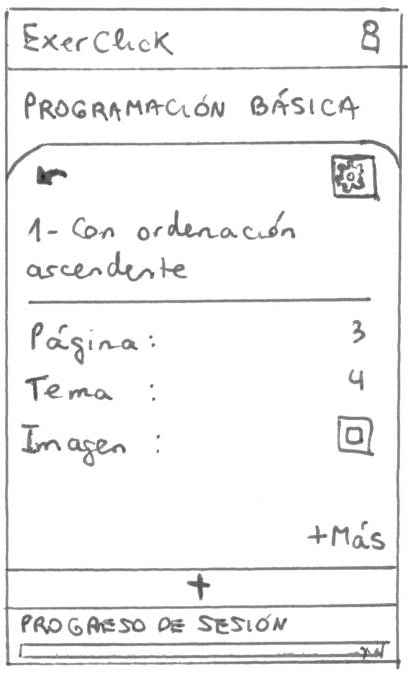 ExerClick
PROGRAMACIÓN BÁSICA
1- Con ordenación
ascendente
Página: 3
Tema : 4
Imagen :
+Más
+
PROGRESO DE SESIÓN